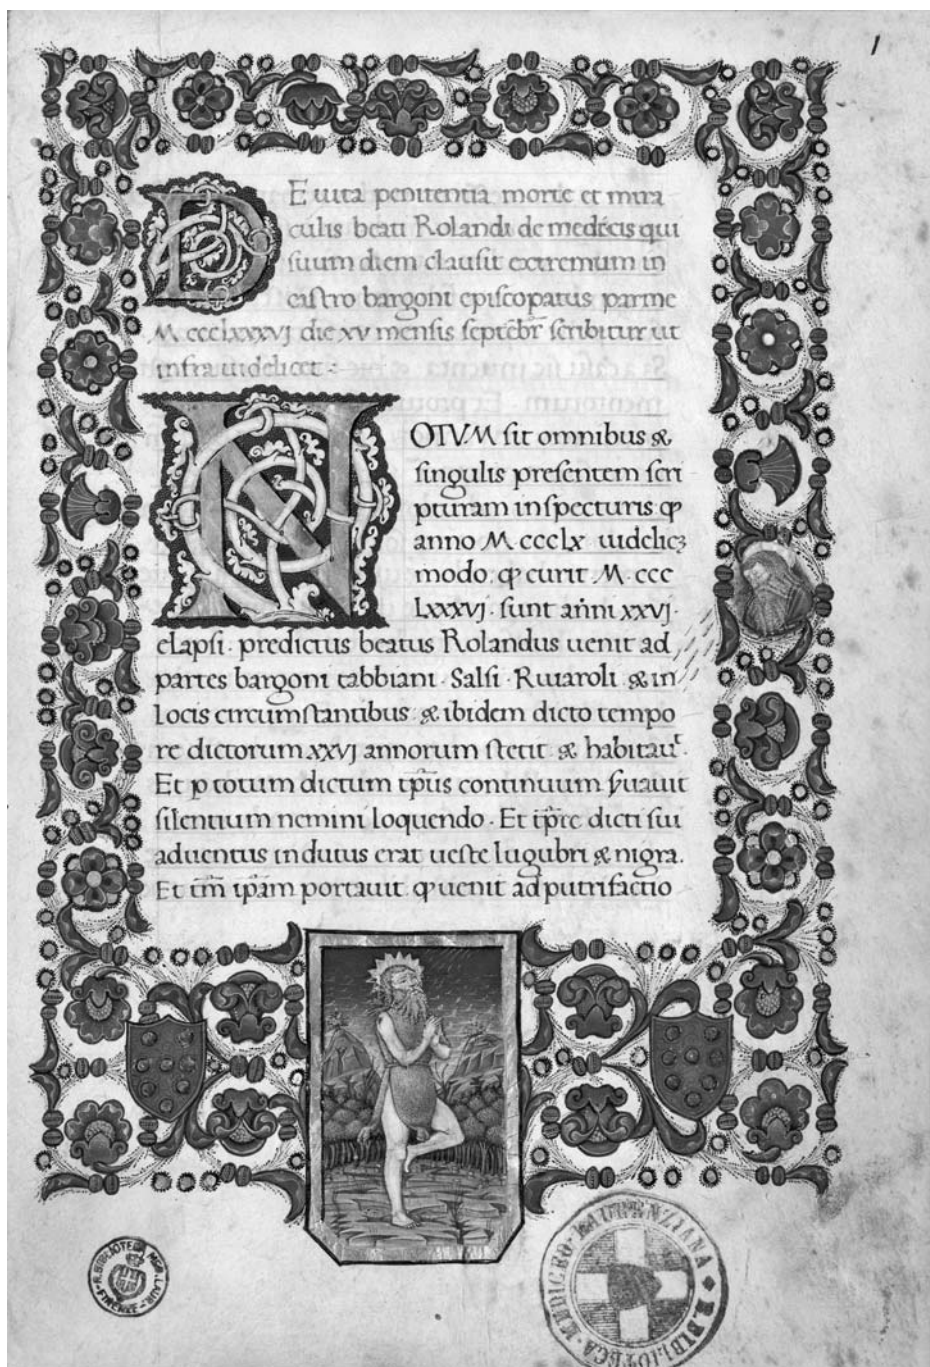 1
DE uita penitentia morte et mira
culis beati Rolandi de medicis qui
suum diem clausit extremum in
castro bargoni episcopatus parme
M ccclxxxvj die xv mensis septēbr̄ scribitur ut
infra uidelicet :
NOTVM sit omnibus &
singulis presentem scri
pturam inspecturis ꝙ
anno M ccclx uidelicꝫ
modo ꝙ curit M ccc
Lxxxvj · sunt anni xxvj ·
elapsi · predictus beatus Rolandus uenit ad
partes bargoni tabbiani · Salsi · Riuaroli & in
locis circumstantibus & ibidem dicto tempo
re dictorum xxvj annorum stetit & habitau͛ ·
Et ꝑ totum dictum tp̄us continuum s̄uauit
silentium nemini loquendo · Et tp̄re dicti sui
aduentus indutus erat ueste lugubri & nigra.
Et tm̄ ip̄am portauit ꝙ uenit ad putrifactio
R. BIBLIOTECA MED. LAUR.
FIRENZE
R. BIBLIOTECA MEDICEO-LAURENZIANA